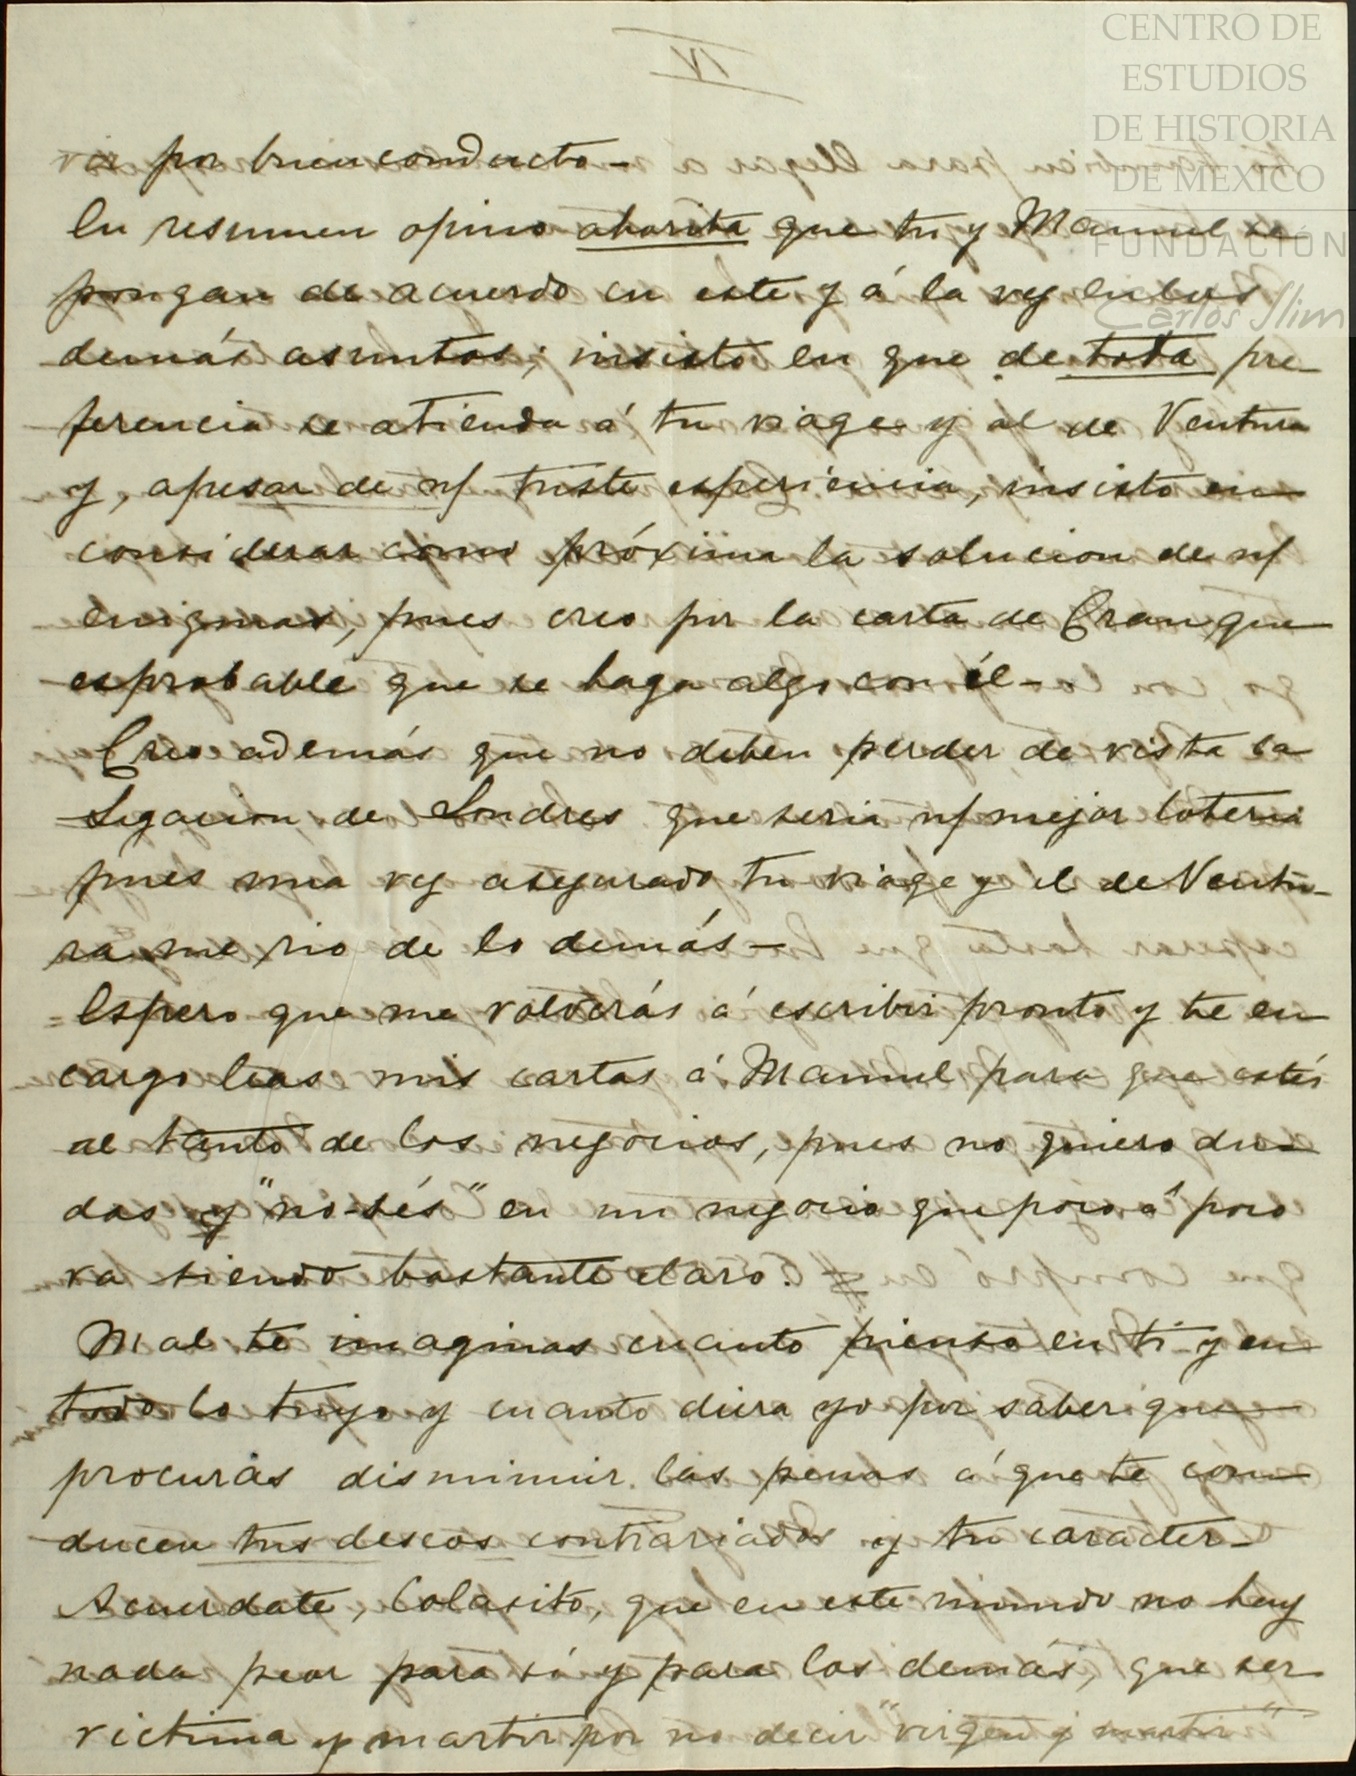 CENTRO DE
ESTUDIOS
DE HISTORIA
DE MEXICO
FUNDACIÓN
Carlos Slim
IV
por buen conducto—
En resumen opino ahorita que tu y Manuel se
pongan de acuerdo en este y á la vez en los
demás asuntos; insisto en que de toda pre-
ferencia se atienda á tu viage y al de Ventura
y, apesar de n/ triste esperiencia, insisto en
considerar como próxima la solucion de n/
enigmas, pues creo por la carta de Cran que
es probable que se haga algo con él—
Creo además que no deben perder de vista la
Legacion de Londres que seria n/ mejor loteria
pues una vez asegurado tu viage y el de Ventu-
ra me rio de lo demás—
Espero que me volverás á escribir pronto y te en
cargo leas mis cartas á Manuel para que estés
al tanto de los negocios, pues no quiero du-
das y "no-sés" en un negocio que poco á poco
va siendo bastante claro.
Mal te imaginas cuanto pienso en ti y en
todo lo tuyo y cuanto diera yo por saber que
procuras disminuir las penas á que te con-
ducen tus deseos contrariados y tu caracter—
Acuerdate, Colasito, que en este mundo no hay
nada peor para sí y para los demás, que ser
victima y martir por no decir "virgen y martir"